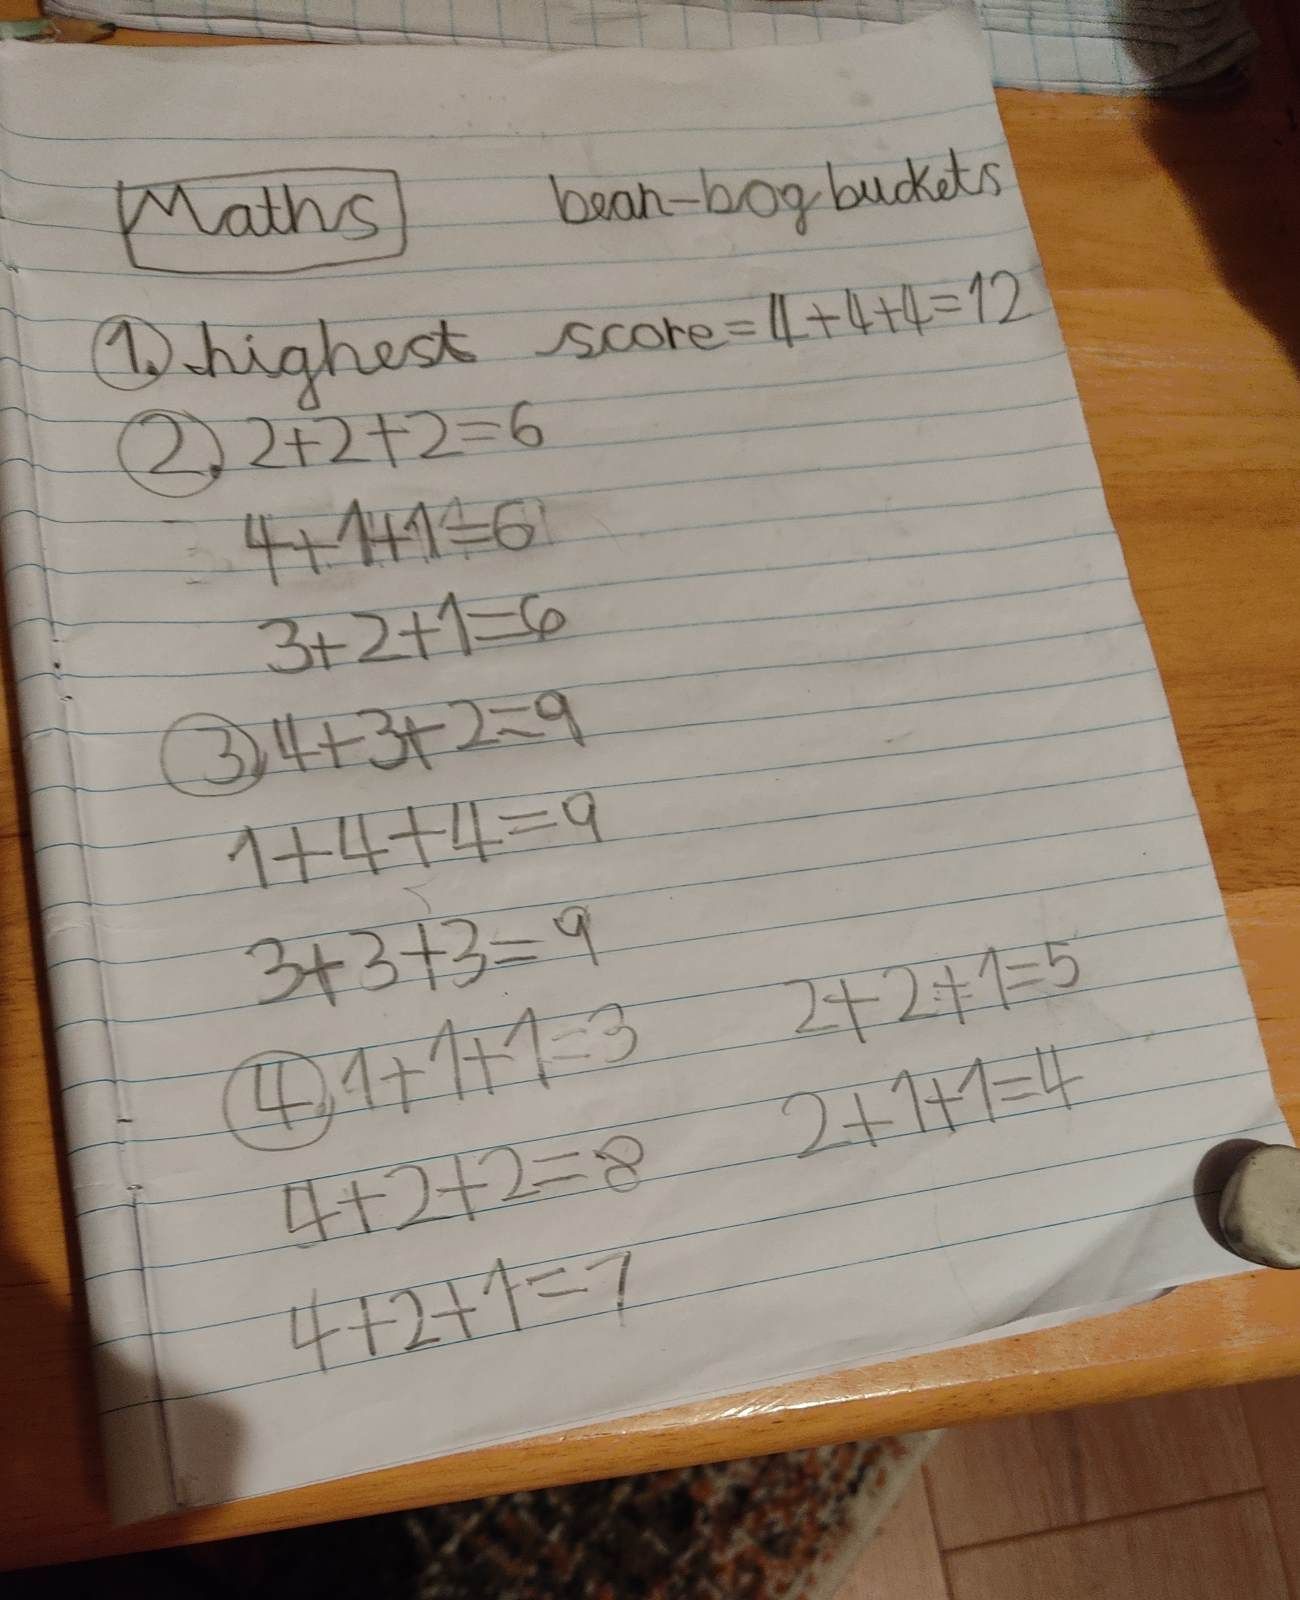 Maths bean-bog buckets
1. highest score=4+4+4=12
2. 2+2+2=6
4+1+1=6
3+2+1=6
3. 4+3+2=9
1+4+4=9
3+3+3=9
4. 1+1+1=3
4+2+2=8
4+2+1=7
2+2+1=5
2+1+1=4